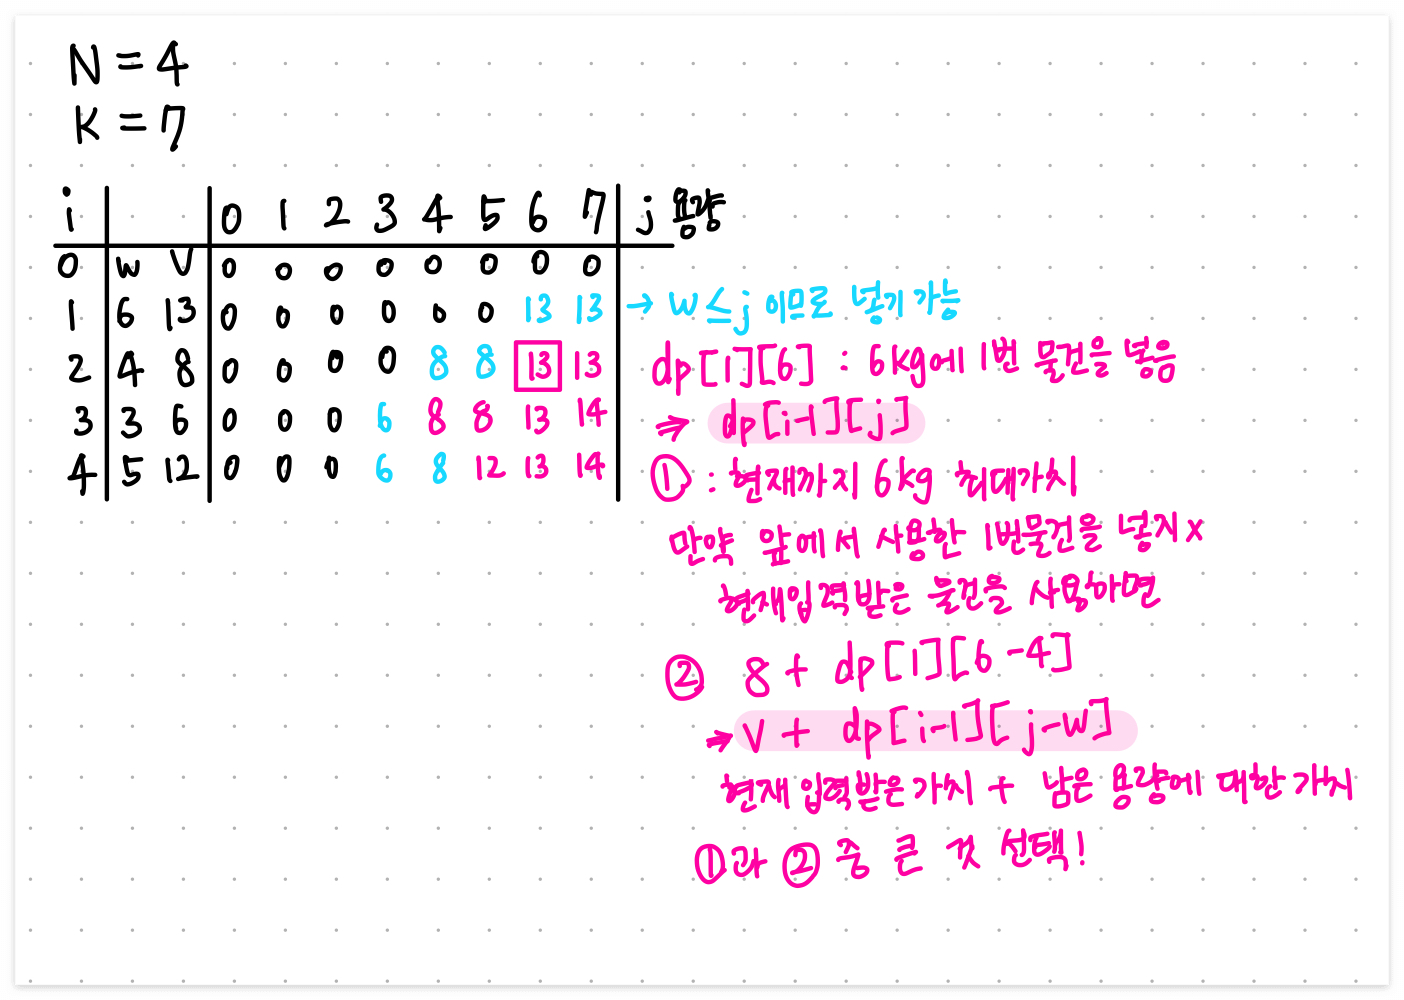 N = 4
K = 7
i 0 1 2 3 4 5 6 7 j 용량
0 w V 0 0 0 0 0 0 0 0
1 6 13 0 0 0 0 0 0 13 13 → w ≤ j 이므로 넣기 가능
2 4 8 0 0 0 0 8 8 13 13
3 3 6 0 0 0 6 8 8 13 14
4 5 12 0 0 0 6 8 12 13 14
dp[1][6] : 6kg에 1번 물건을 넣음
⇒ dp[i-1][j]
① : 현재까지 6kg 최대가치
만약 앞에서 사용한 1번물건을 넣지x
현재입력받은 물건을 사용하면
② 8 + dp[1][6-4]
⇒ V + dp[i-1][j-w]
현재 입력받은가치 + 남은 용량에 대한 가치
①과 ② 중 큰 것 선택!